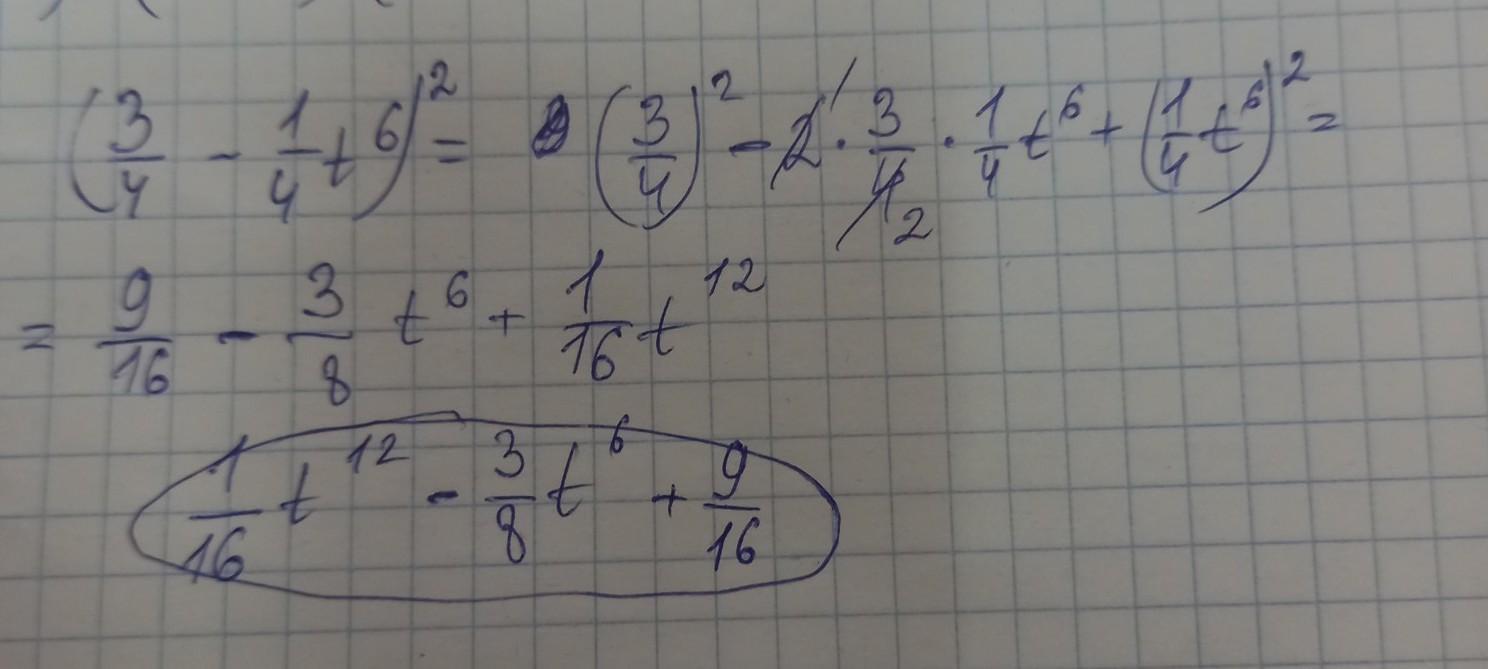 (3/4 - 1/4 t^6)^2 = (3/4)^2 - 2 · 3/4 · 1/4 t^6 + (1/4 t^6)^2 =
= 9/16 - 3/8 t^6 + 1/16 t^12
1/16 t^12 - 3/8 t^6 + 9/16